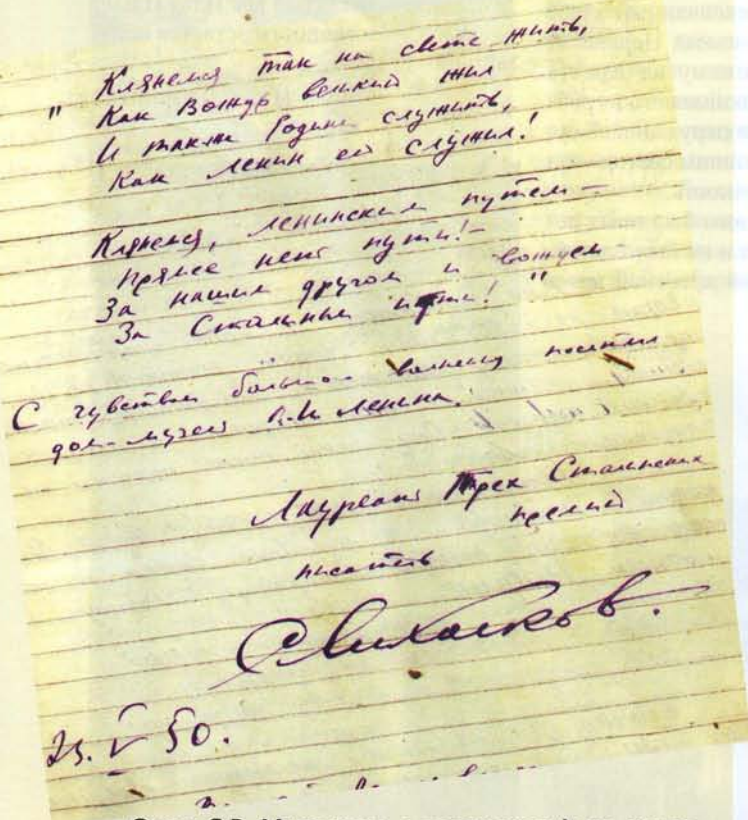 " Клянемся так на свете жить,
Как Вождь великий жил
И так же Родине служить,
Как Ленин ей служил!
Клянемся, ленинским путем –
прямее нет пути! –
За нашим другом и вождем
За Сталиным идти! "
С чувством большого волнения посетил
дом-музей В.И. Ленина.
Лауреат Трех Сталинских
премий
писатель
С Михалков.
23. V 50.